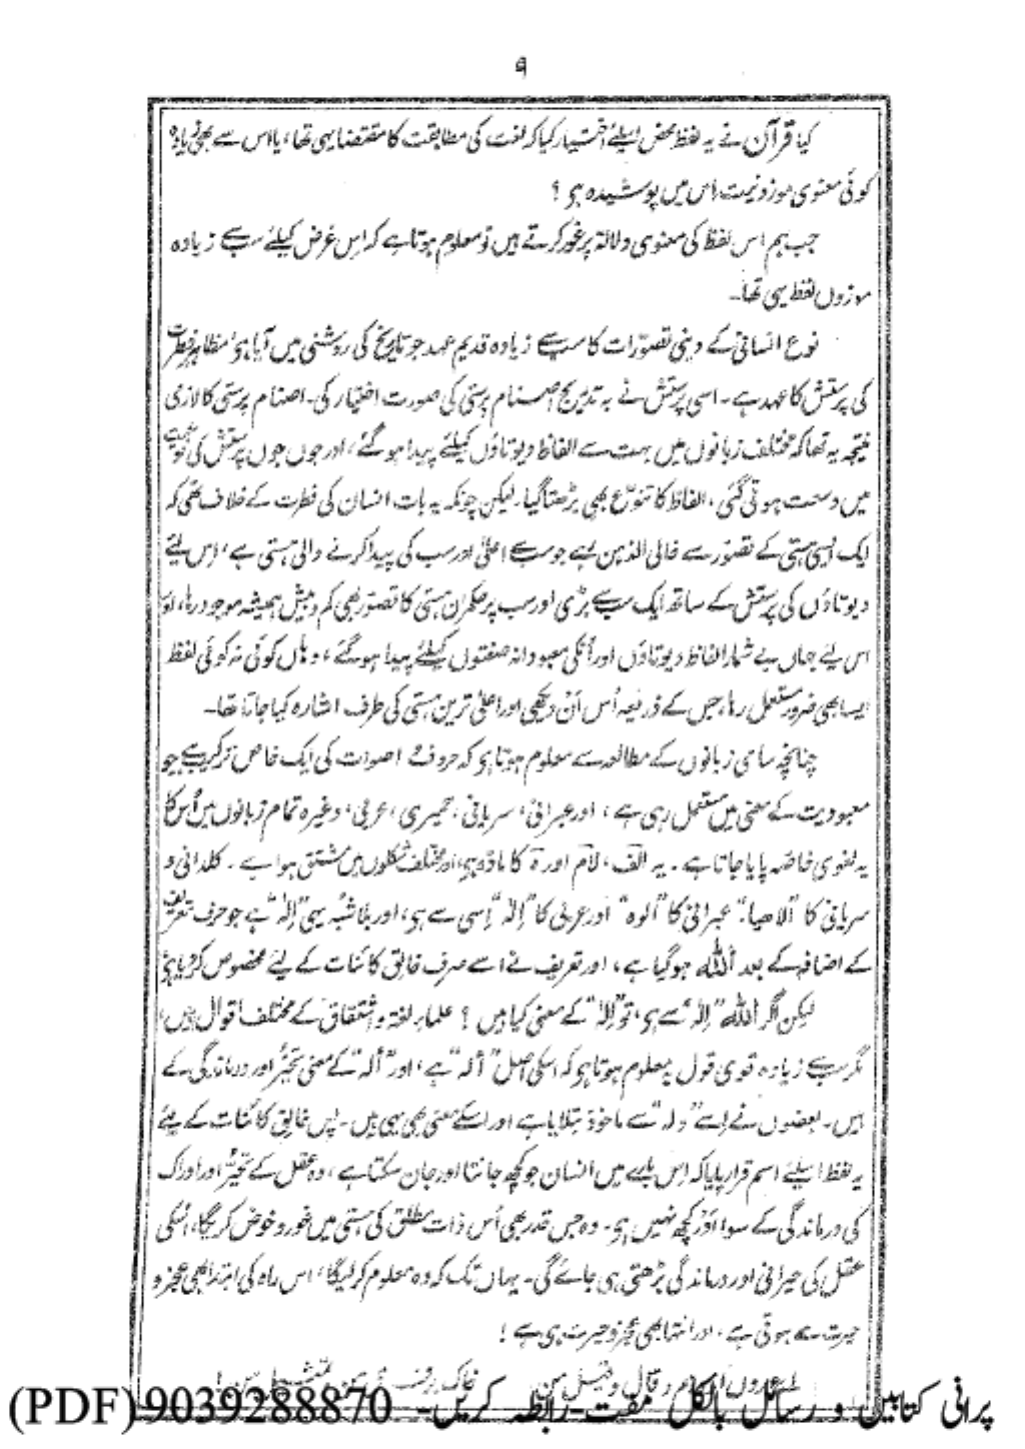 ۹
کیا قرآن نے یہ لفظ محض اسلئے اختیار کیا کہ لغت کی مطابقت کا مقتضا یہی تھا، یا اس سے بھی زیادہ
کوئی معنوی موزونیت اس میں پوشیدہ ہی؟
جب ہم اس لفظ کی معنوی دلالۃ پر غور کرتے ہیں تو معلوم ہوتا ہے کہ اس غرض کیلئے سب سے زیادہ
موزوں لفظ یہی تھا۔
نوع انسانی کے دینی تصوّرات کا سب سے زیادہ قدیم عہد جو تاریخ کی روشنی میں آیا ہی، مظاہر فطرت
کی پرستش کا عہد ہے۔ اسی پرستش نے بہ تدریج اصنام پرستی کی صورت اختیار کی۔ اصنام پرستی کا لازمی
نتیجہ یہ تھا کہ مختلف زبانوں میں بہت سے الفاظ دیوتاؤں کیلئے پیدا ہو گئے، اور جوں جوں پرستش کی نوعیت
میں وسعت ہوتی گئی، الفاظ کا تنوّع بھی بڑھتا گیا۔ لیکن چونکہ یہ بات انسان کی فطرت کے خلاف تھی کہ
ایک ایسی ہستی کے تصوّر سے خالی الذہن رہے جو سب سے اعلیٰ اور سب کی پیدا کرنے والی ہستی ہے، اس لیئے
دیوتاؤں کی پرستش کے ساتھ ایک سب سے بڑی اور سب پر حکمران ہستی کا تصوّر بھی کم و بیش ہمیشہ موجود رہا، اور
اس لیئے جہاں بے شمار الفاظ دیوتاؤں اور اُنکی معبودانہ صفتوں کیلئے پیدا ہو گئے، وہاں کوئی نہ کوئی لفظ
ایسا بھی ضرور مستعمل رہا، جس کے ذریعہ اُس اَن دیکھی اور اعلیٰ ترین ہستی کی طرف اشارہ کیا جاتا تھا۔
چنانچہ سامی زبانوں کے مطالعہ سے معلوم ہوتا ہی کہ حروف و اصوات کی ایک خاص ترکیب ہے جو
معبودیت کے معنی میں مستعمل رہی ہے، اور عبرانی، سریانی، حمیری، عربی، وغیرہ تمام زبانوں میں اُس کا
یہ لغوی خاصّہ پایا جاتا ہے۔ یہ الف، لام اور ہ کا مادّہ ہی، اور مختلف شکلوں میں مشتق ہوا ہے۔ کلدانی و
سریانی کا "الاھیا" عبرانی کا "الوہ" اور عربی کا "اِلٰہ" اِسی سے ہی، اور بلا شُبہ یہی "اِلٰہ" ہے جو حرف تعریف
کے اضافہ کے بعد اَللّٰہ ہو گیا ہے، اور تعریف نے اسے صرف خالق کائنات کے لیے مخصوص کر دیا ہی
لیکن اگر اَللّٰہ "اِلٰہ" سے ہی، تو "اِلٰہ" کے معنی کیا ہیں؟ علماء لغۃ و اشتقاق کے مختلف اقوال ہیں،
مگر سب سے زیادہ قوی قول یہ معلوم ہوتا ہی کہ اسکی اصل "اَلہ" ہے، اور "اَلہ" کے معنی تحیّر اور درماندگی کے
ہیں۔ بعضوں نے اسے "ولہ" سے ماخوذ بتلایا ہے اور اسکے معنی بھی یہی ہیں۔ پس خالق کائنات کے لیئے
یہ لفظ اسلئے اسم قرار پایا کہ اِس بارے میں انسان جو کچھ جانتا اور جان سکتا ہے، وہ عقل کے تحیّر اور ادراک
کی درماندگی کے سوا اور کچھ نہیں ہی۔ وہ جس قدر بھی اُس ذات مطلق کی ہستی میں غور و خوض کریگا، اُسکی
عقل کی حیرانی اور درماندگی بڑھتی ہی جائے گی۔ یہاں تک کہ وہ معلوم کر لیگا، اس راہ کی ابتدا بھی عجز و
حیرت سے ہوتی ہے، اور انتہا بھی عجز و حیرت ہی ہے!
پرانی کتابیں و رسائل بالکل مفت۔ رابطہ کریں۔ 9039288870(PDF)